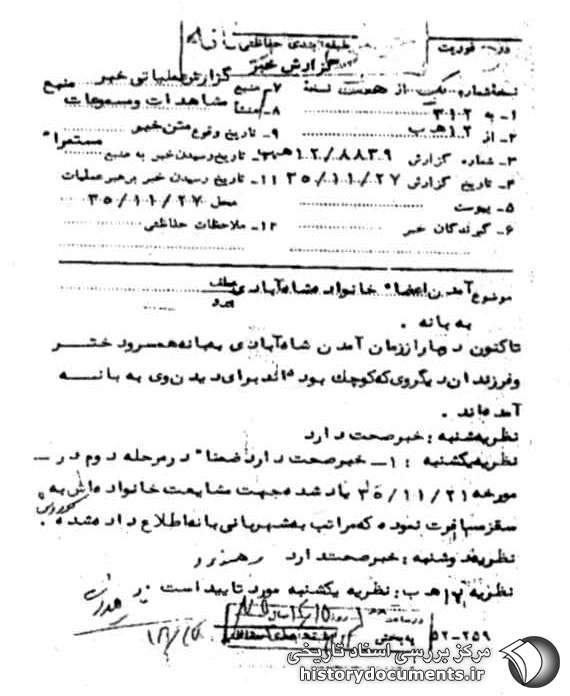 طبقه بندی حفاظتی
درجه فوریت
گزارش خبر
نسخه شماره یک از هفت نسخه
۷ـ منبع گزارش عملیاتی خبر منبع
۱ـ به ۳۱۲
۸ـ منشأ مشاهدات و مسموعات
۲ـ از ۱۲ هـ ب
۹ـ تاریخ وقوع متن خبر مستمراً
۳ـ شماره گزارش ۱۲/۸۸۳۹ هـ ب
تاریخ رسیدن خبر به منبع
۴ـ تاریخ گزارش ۳۵/۱۱/۲۷
۱۱ـ تاریخ رسیدن خبر برهبر عملیات
۵ـ پیوست
محل ۳۵/۱۱/۲۷
۶ـ گیرندگان خبر
۱۲ـ ملاحظات حفاظتی
موضوع آمدن اعضاء خانواده شاه آبادی
عطف
پیرو
به بانه .
تاکنون دوبار از زمان آمدن شاه آبادی به بانه همسر و دختر
و فرزندان دیگر وی که کوچک بوده اند برای دیدن وی به بانه
آمده اند .
نظریه شنبه : خبر صحت دارد
نظریه یکشنبه : ۱ـ خبر صحت دارد ضمناً در مرحله دوم در ـ
مورخه ۳۵/۱۱/۲۱ یاد شده جهت مشایعت خانواده اش به
سقز مسافرت نموده که مراتب به شهربانی بانه اطلاع داده شده .
نظریه دوشنبه : خبر صحت دارد
نظریه ۱۲ هـ ب : نظریه یکشنبه مورد تایید است
۵۲-۲۵۹
مرکز بررسی اسناد تاریخی
historydocuments.ir